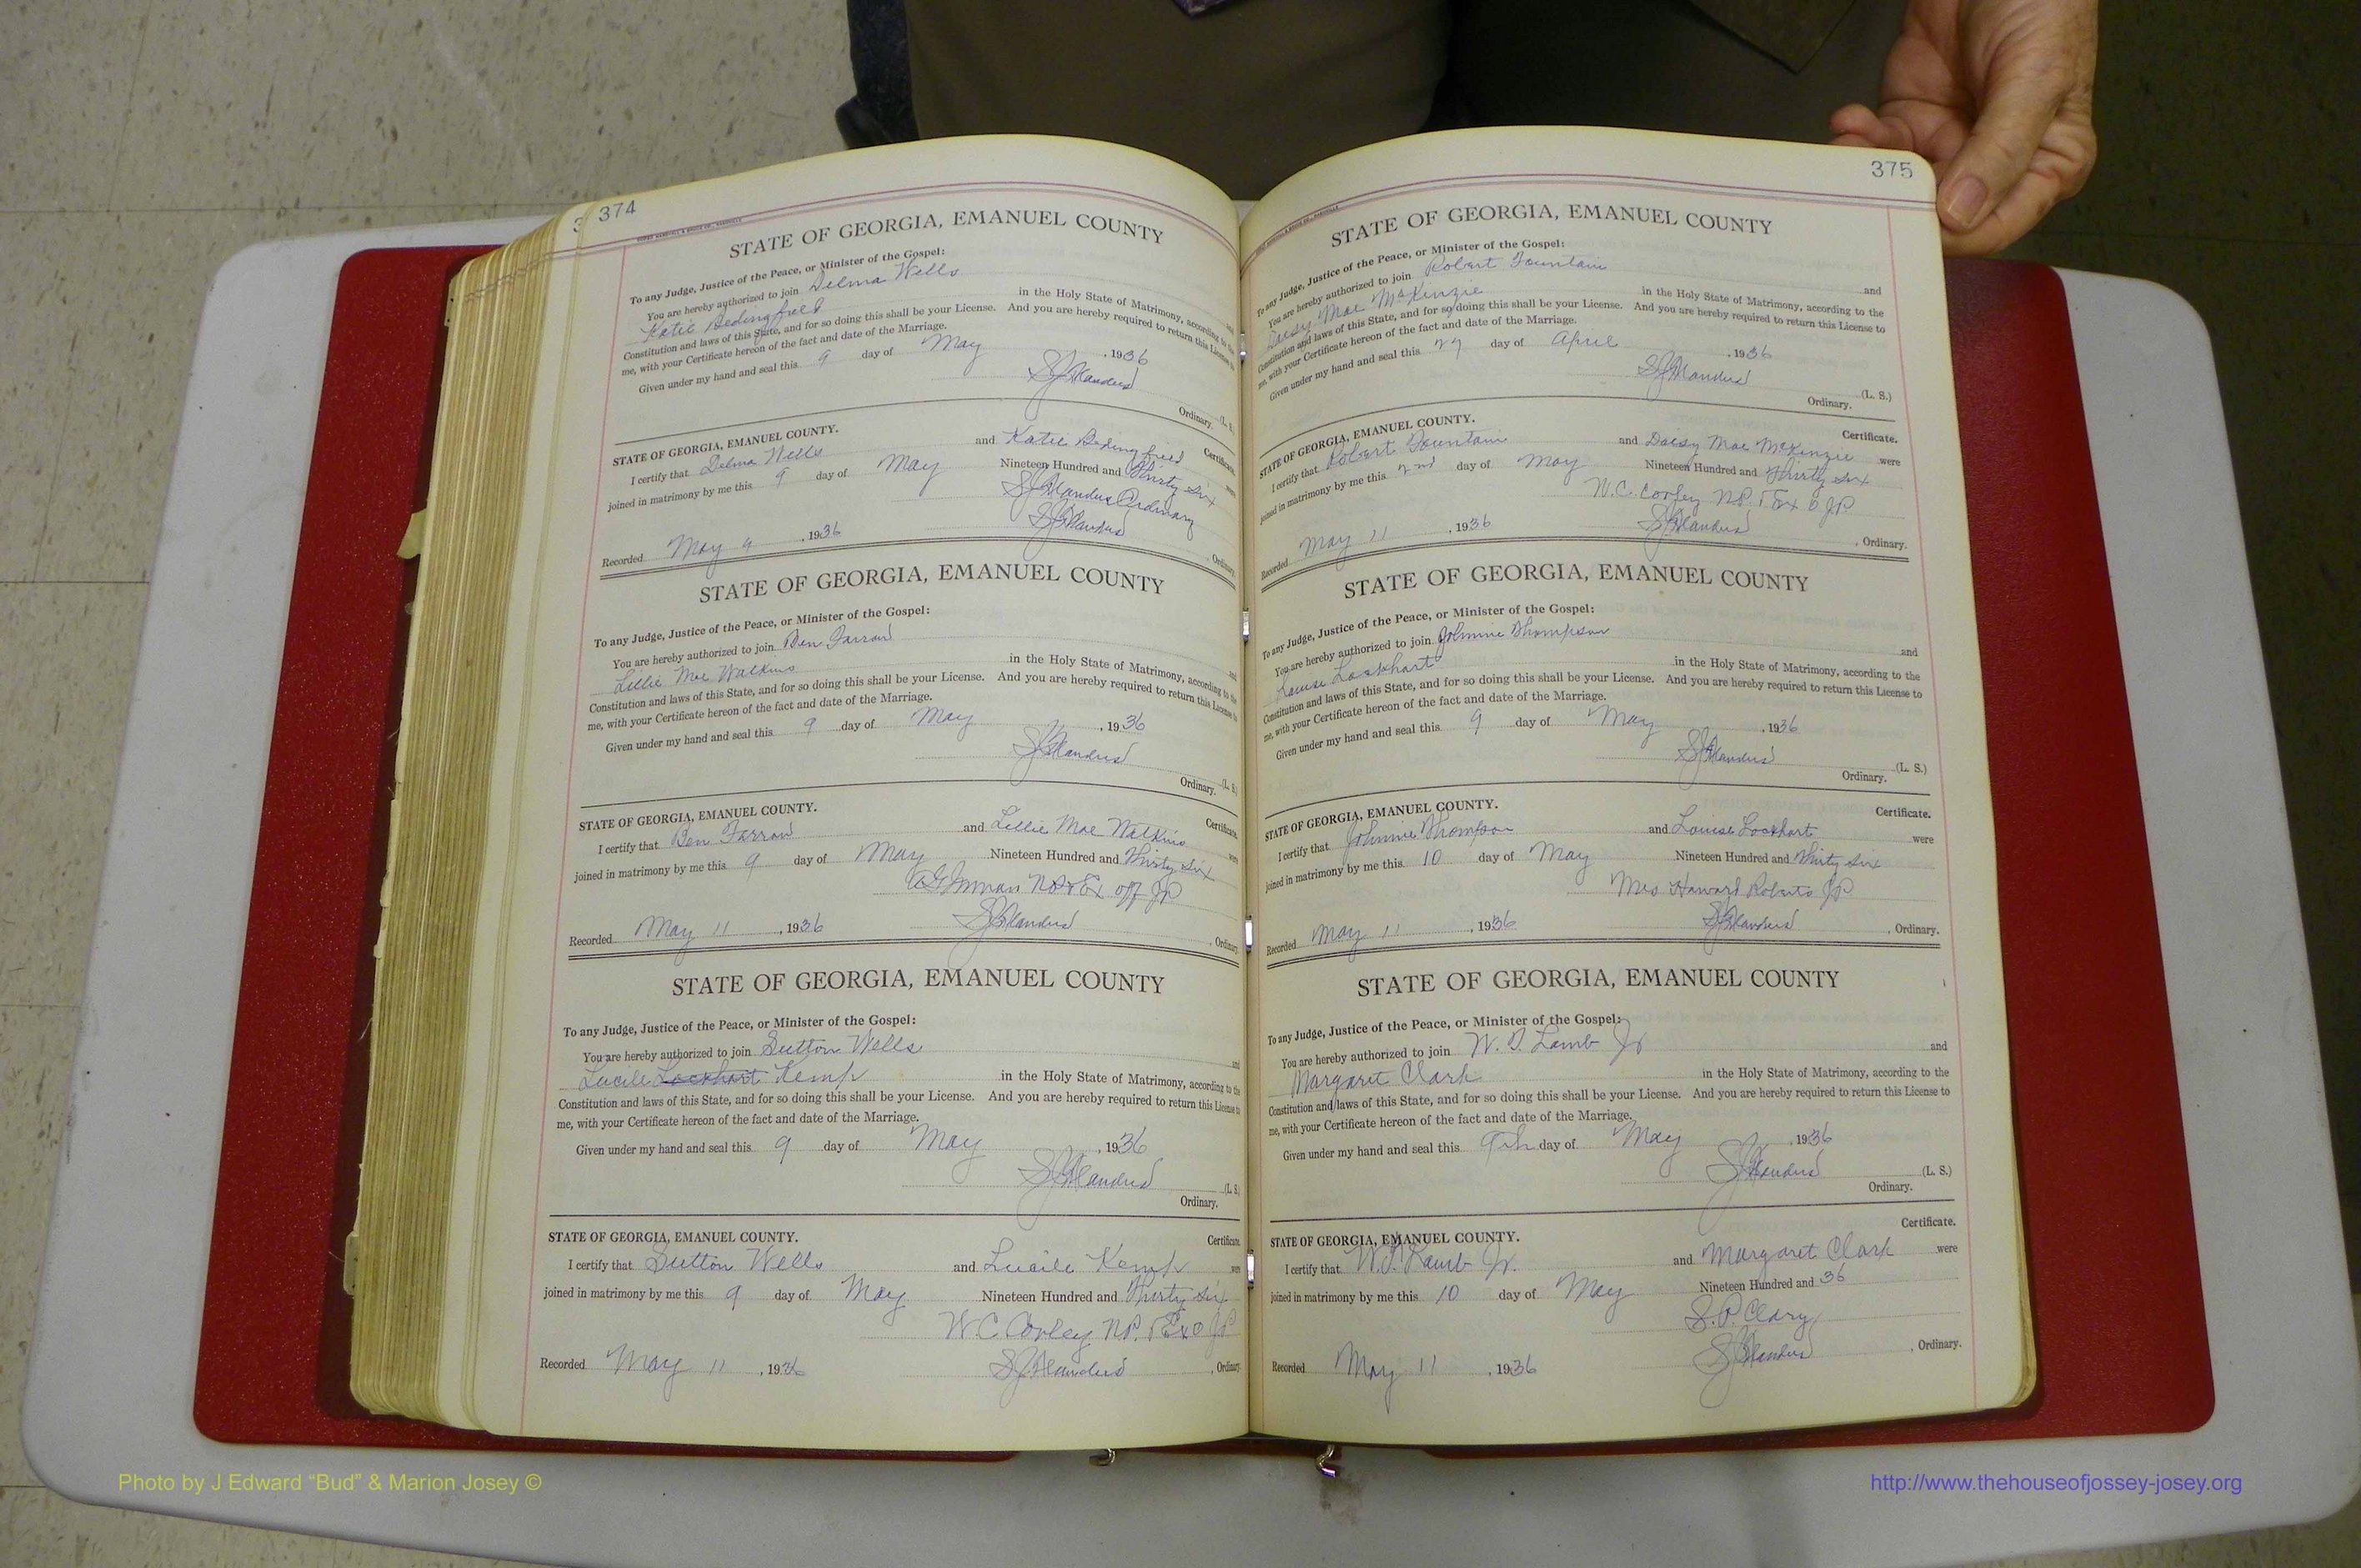 374
STATE OF GEORGIA, EMANUEL COUNTY
To any Judge, Justice of the Peace, or Minister of the Gospel:
You are hereby authorized to join Delma Wells
Katie Bedingfield in the Holy State of Matrimony, according to the
Constitution and laws of this State, and for so doing this shall be your License. And you are hereby required to return this License
me, with your Certificate hereon of the fact and date of the Marriage.
Given under my hand and seal this 9 day of May, 1936
Ordinary. (L. S.
STATE OF GEORGIA, EMANUEL COUNTY. Certificate.
I certify that Delma Wells and Katie Bedingfield
joined in matrimony by me this 9 day of May Nineteen Hundred and Thirty Six
Ordinary
Recorded May 9, 1936
STATE OF GEORGIA, EMANUEL COUNTY
To any Judge, Justice of the Peace, or Minister of the Gospel:
You are hereby authorized to join Ben Farrow
Lillie Mae Watkins in the Holy State of Matrimony, according to the
Constitution and laws of this State, and for so doing this shall be your License. And you are hereby required to return this License to
me, with your Certificate hereon of the fact and date of the Marriage.
Given under my hand and seal this 9 day of May, 1936
Ordinary. (L. S.
STATE OF GEORGIA, EMANUEL COUNTY. Certificate.
I certify that Ben Farrow and Lillie Mae Watkins
joined in matrimony by me this 9 day of May Nineteen Hundred and Thirty Six
NP & Ex off JP
Recorded May 11, 1936
STATE OF GEORGIA, EMANUEL COUNTY
To any Judge, Justice of the Peace, or Minister of the Gospel:
You are hereby authorized to join Sutton Wells and
Lucile Lockhart Kemp in the Holy State of Matrimony, according to the
Constitution and laws of this State, and for so doing this shall be your License. And you are hereby required to return this License to
me, with your Certificate hereon of the fact and date of the Marriage.
Given under my hand and seal this 9 day of May, 1936
(L. S.
Ordinary.
STATE OF GEORGIA, EMANUEL COUNTY. Certificate.
I certify that Sutton Wells and Lucile Kemp
joined in matrimony by me this 9 day of May Nineteen Hundred and Thirty Six
W.C. Corley NP. & Ex O JP
Recorded May 11, 1936, Ordinary.
375
STATE OF GEORGIA, EMANUEL COUNTY
To any Judge, Justice of the Peace, or Minister of the Gospel:
You are hereby authorized to join Robert Fountain and
Daisy Mae McKenzie in the Holy State of Matrimony, according to the
Constitution and laws of this State, and for so doing this shall be your License. And you are hereby required to return this License to
me, with your Certificate hereon of the fact and date of the Marriage.
Given under my hand and seal this day of April, 1936
(L. S.)
Ordinary.
STATE OF GEORGIA, EMANUEL COUNTY. Certificate.
I certify that Robert Fountain and Daisy Mae McKenzie were
joined in matrimony by me this 2nd day of May Nineteen Hundred and Thirty Six
W.C. Corley NP. & Ex O JP.
Recorded May 11, 1936, Ordinary.
STATE OF GEORGIA, EMANUEL COUNTY
To any Judge, Justice of the Peace, or Minister of the Gospel:
You are hereby authorized to join Johnnie Thompson and
Louise Lockhart in the Holy State of Matrimony, according to the
Constitution and laws of this State, and for so doing this shall be your License. And you are hereby required to return this License to
me, with your Certificate hereon of the fact and date of the Marriage.
Given under my hand and seal this 9 day of May, 1936
(L. S.)
Ordinary.
STATE OF GEORGIA, EMANUEL COUNTY. Certificate.
I certify that Johnnie Thompson and Louise Lockhart were
joined in matrimony by me this 10 day of May Nineteen Hundred and Thirty Six
Mrs Howard Roberts JP
Recorded May 11, 1936, Ordinary.
STATE OF GEORGIA, EMANUEL COUNTY
To any Judge, Justice of the Peace, or Minister of the Gospel:
You are hereby authorized to join Lamb Jr and
Margaret Clark in the Holy State of Matrimony, according to the
Constitution and laws of this State, and for so doing this shall be your License. And you are hereby required to return this License to
me, with your Certificate hereon of the fact and date of the Marriage.
Given under my hand and seal this 9th day of May, 1936
(L. S.)
Ordinary.
STATE OF GEORGIA, EMANUEL COUNTY. Certificate.
I certify that Lamb Jr. and Margaret Clark were
joined in matrimony by me this 10 day of May Nineteen Hundred and 36
S.P. Clary
Recorded May 11, 1936, Ordinary.
Photo by J Edward “Bud” & Marion Josey ©
http://www.thehouseofjossey-josey.org